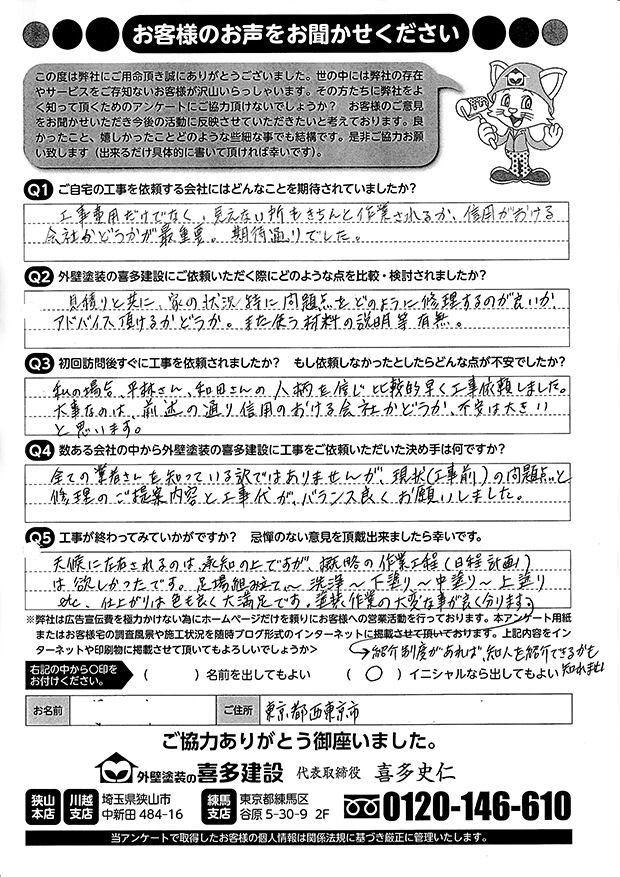 お客様のお声をお聞かせください
この度は弊社にご用命頂き誠にありがとうございました。世の中には弊社の存在
やサービスをご存知ないお客様が沢山いらっしゃいます。その方たちに弊社をよ
く知って頂くためのアンケートにご協力頂けないでしょうか？　お客様のご意見
をお聞かせいただき今後の活動に反映させていただきたいと考えております。良
かったこと、嬉しかったことどのような些細な事でも結構です。是非ご協力お願
い致します（出来るだけ具体的に書いて頂ければ幸いです）。
Q1 ご自宅の工事を依頼する会社にはどんなことを期待されていましたか？
工事費用だけでなく、見えない所もきちんと作業されるか、信用がおける
会社かどうかが最重要。期待通りでした。
Q2 外壁塗装の喜多建設にご依頼いただく際にどのような点を比較・検討されましたか？
見積りと共に、家の状況 特に問題点をどのように修理するのが良いか
アドバイス頂けるかどうか。また使う材料の説明等有無。
Q3 初回訪問後すぐに工事を依頼されましたか？　もし依頼しなかったとしたらどんな点が不安でしたか？
私の場合、平林さん、和田さんの人柄を信じ比較的早く工事依頼しました。
大事なのは、前述の通り信用のおける会社かどうか、不安は大きい
と思います。
Q4 数ある会社の中から外壁塗装の喜多建設に工事をご依頼いただいた決め手は何ですか？
全ての業者さんを知っている訳ではありませんが、現状(工事前)の問題点と
修理のご提案内容と工事代が、バランス良くお願いしました。
Q5 工事が終わってみていかがですか？　忌憚のない意見を頂戴出来ましたら幸いです。
天候に左右されるのは、承知の上ですが、概略の作業工程(日程計画)
は欲しかったです。足場組立て〜洗浄〜下塗り〜中塗り〜上塗り
etc、仕上がりは色も良く大満足です。塗装作業の大変な事が良く分ります。
※弊社は広告宣伝費を極力かけない為にホームページだけを頼りにお客様への営業活動を行っております。本アンケート用紙
またはお客様宅の調査風景や施工状況を随時ブログ形式のインターネットに掲載させて頂いております。上記内容をイン
ターネットや印刷物に掲載させて頂いてもよろしいでしょうか＞
紹介制度があれば、知人を紹介できるかも
知れません
右記の中から〇印を
お付けください。
（　）名前を出してもよい　（〇）イニシャルなら出してもよい
お名前　ご住所　東京都西東京市
ご協力ありがとう御座いました。
外壁塗装の喜多建設 代表取締役　喜多史仁
狭山本店 川越支店 埼玉県狭山市 中新田 484-16 練馬支店 東京都練馬区 谷原 5-30-9 2F 0120-146-610
当アンケートで取得したお客様の個人情報は関係法規に基づき厳正に管理いたします。